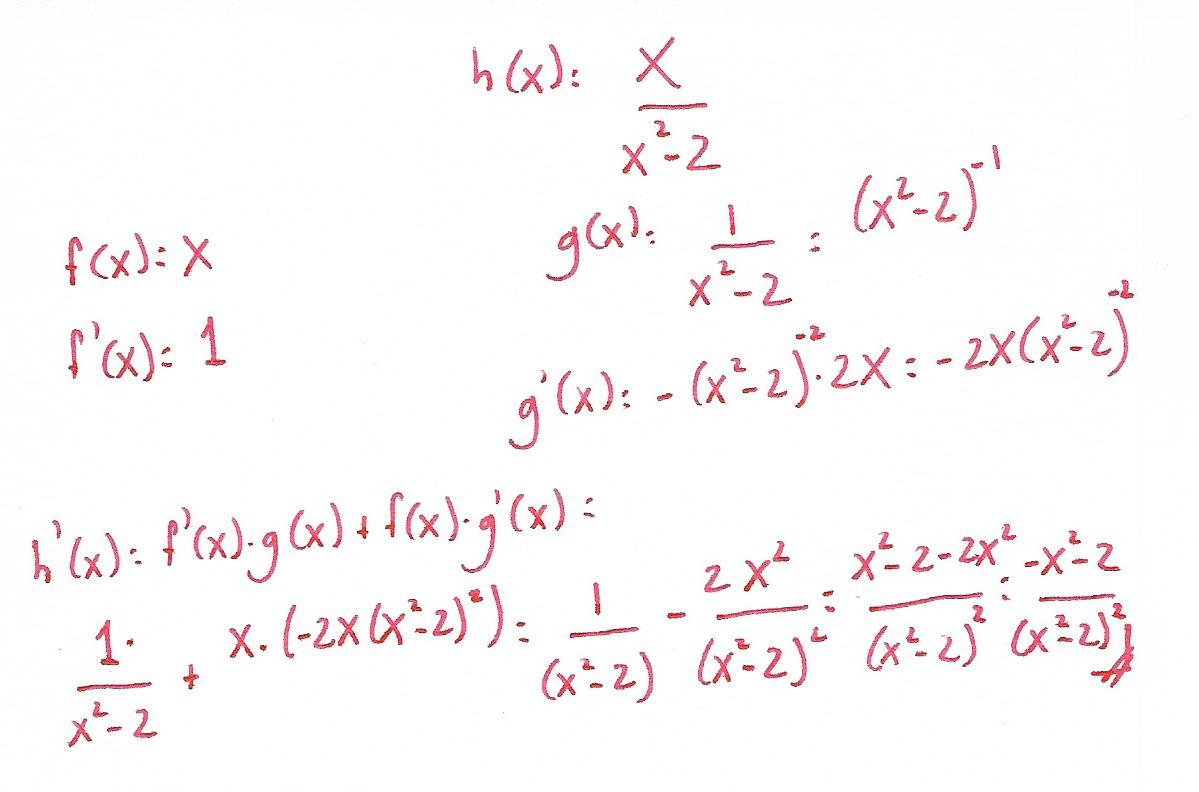 h(x): x/(x²-2)
g(x): 1/(x²-2) : (x²-2)⁻¹
f(x): x
f'(x): 1
g'(x): -(x²-2)⁻²·2x : -2x(x²-2)⁻²
h'(x): f'(x)·g(x)+f(x)·g'(x) :
1·/(x²-2) + x·(-2x(x²-2)⁻²) : 1/(x²-2) - 2x²/(x²-2)² : (x²-2-2x²)/(x²-2)² : (-x²-2)/(x²-2)²